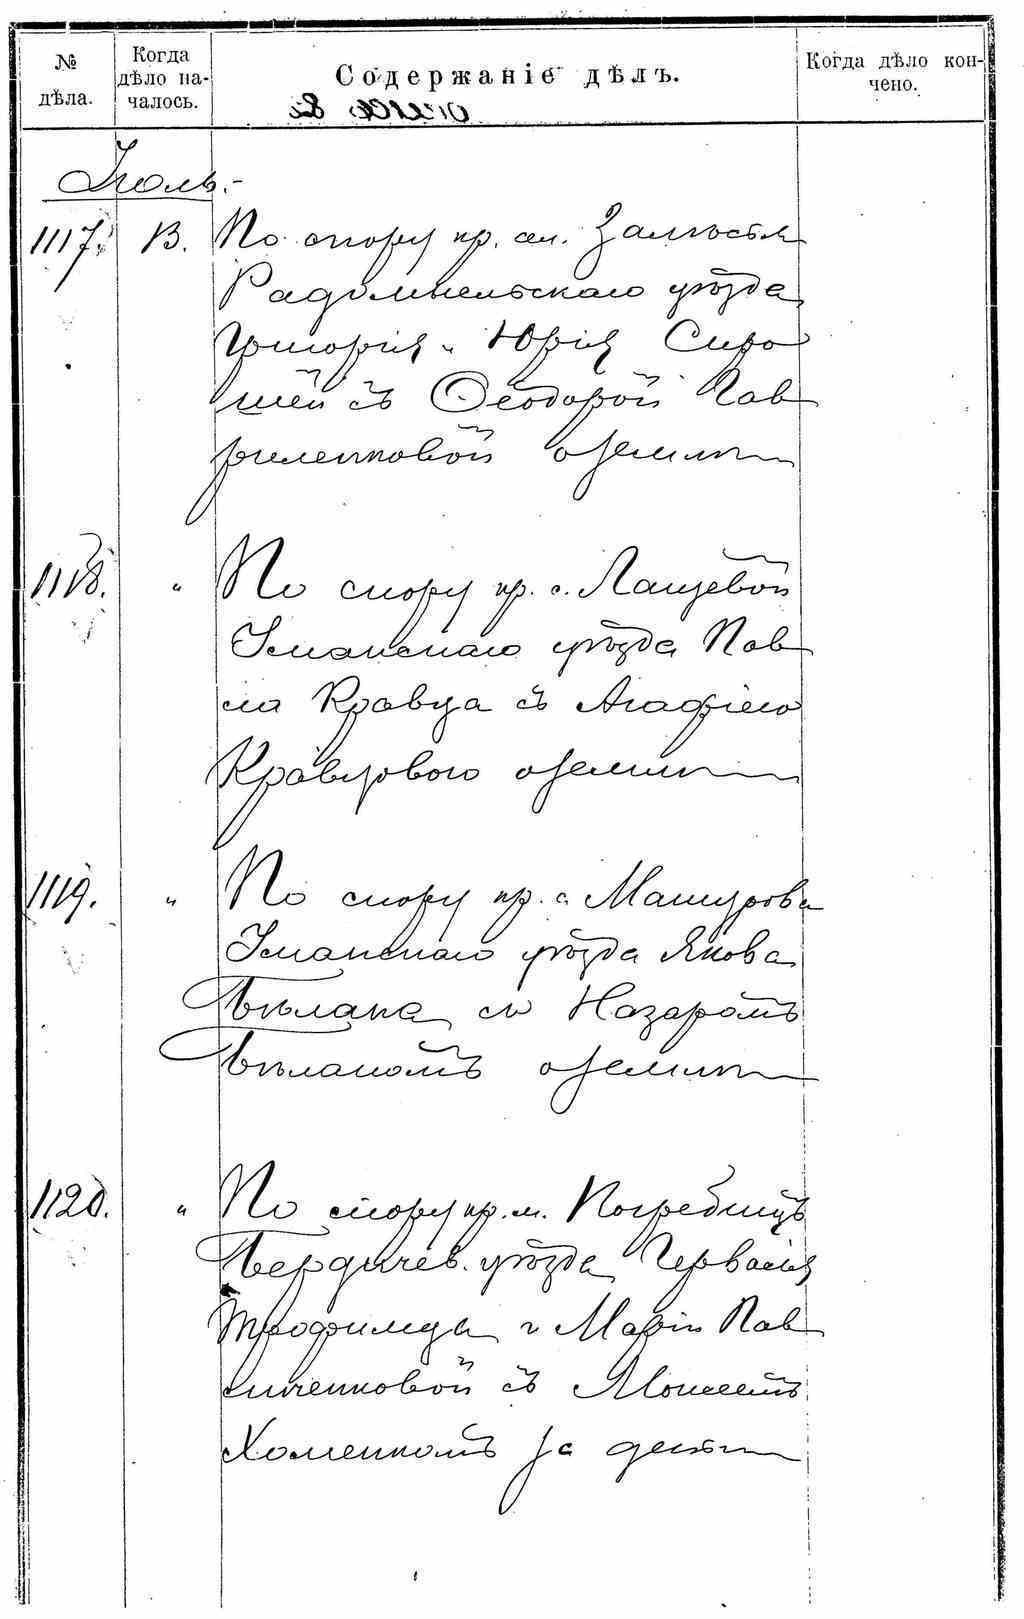 № дѣла.
Когда дѣло началось.
Содержаніе дѣлъ.
Когда дѣло кончено.
Іюль.-
1117. 13. По спору кр. сел. Залѣсья
Радомысльскаго уѣзда
Григорія и Юрія Сиро
шей съ Ѳеодорой Гав
риленковой о землѣ
1118. " По спору кр. с. Лащевой
Уманскаго уѣзда Пав
ла Кравца съ Агафіею
Кравцовою о землѣ
1119. " По спору кр. с. Машурова
Уманскаго уѣзда Якова
Бѣлана съ Назаромъ
Бѣланомъ о землѣ
1120. " По спору кр. м. Погребищъ
Бердичев. уѣзда Гервасія
Трофимца и Маріи Пав
личенковой съ Моисеемъ
Хоменкомъ за